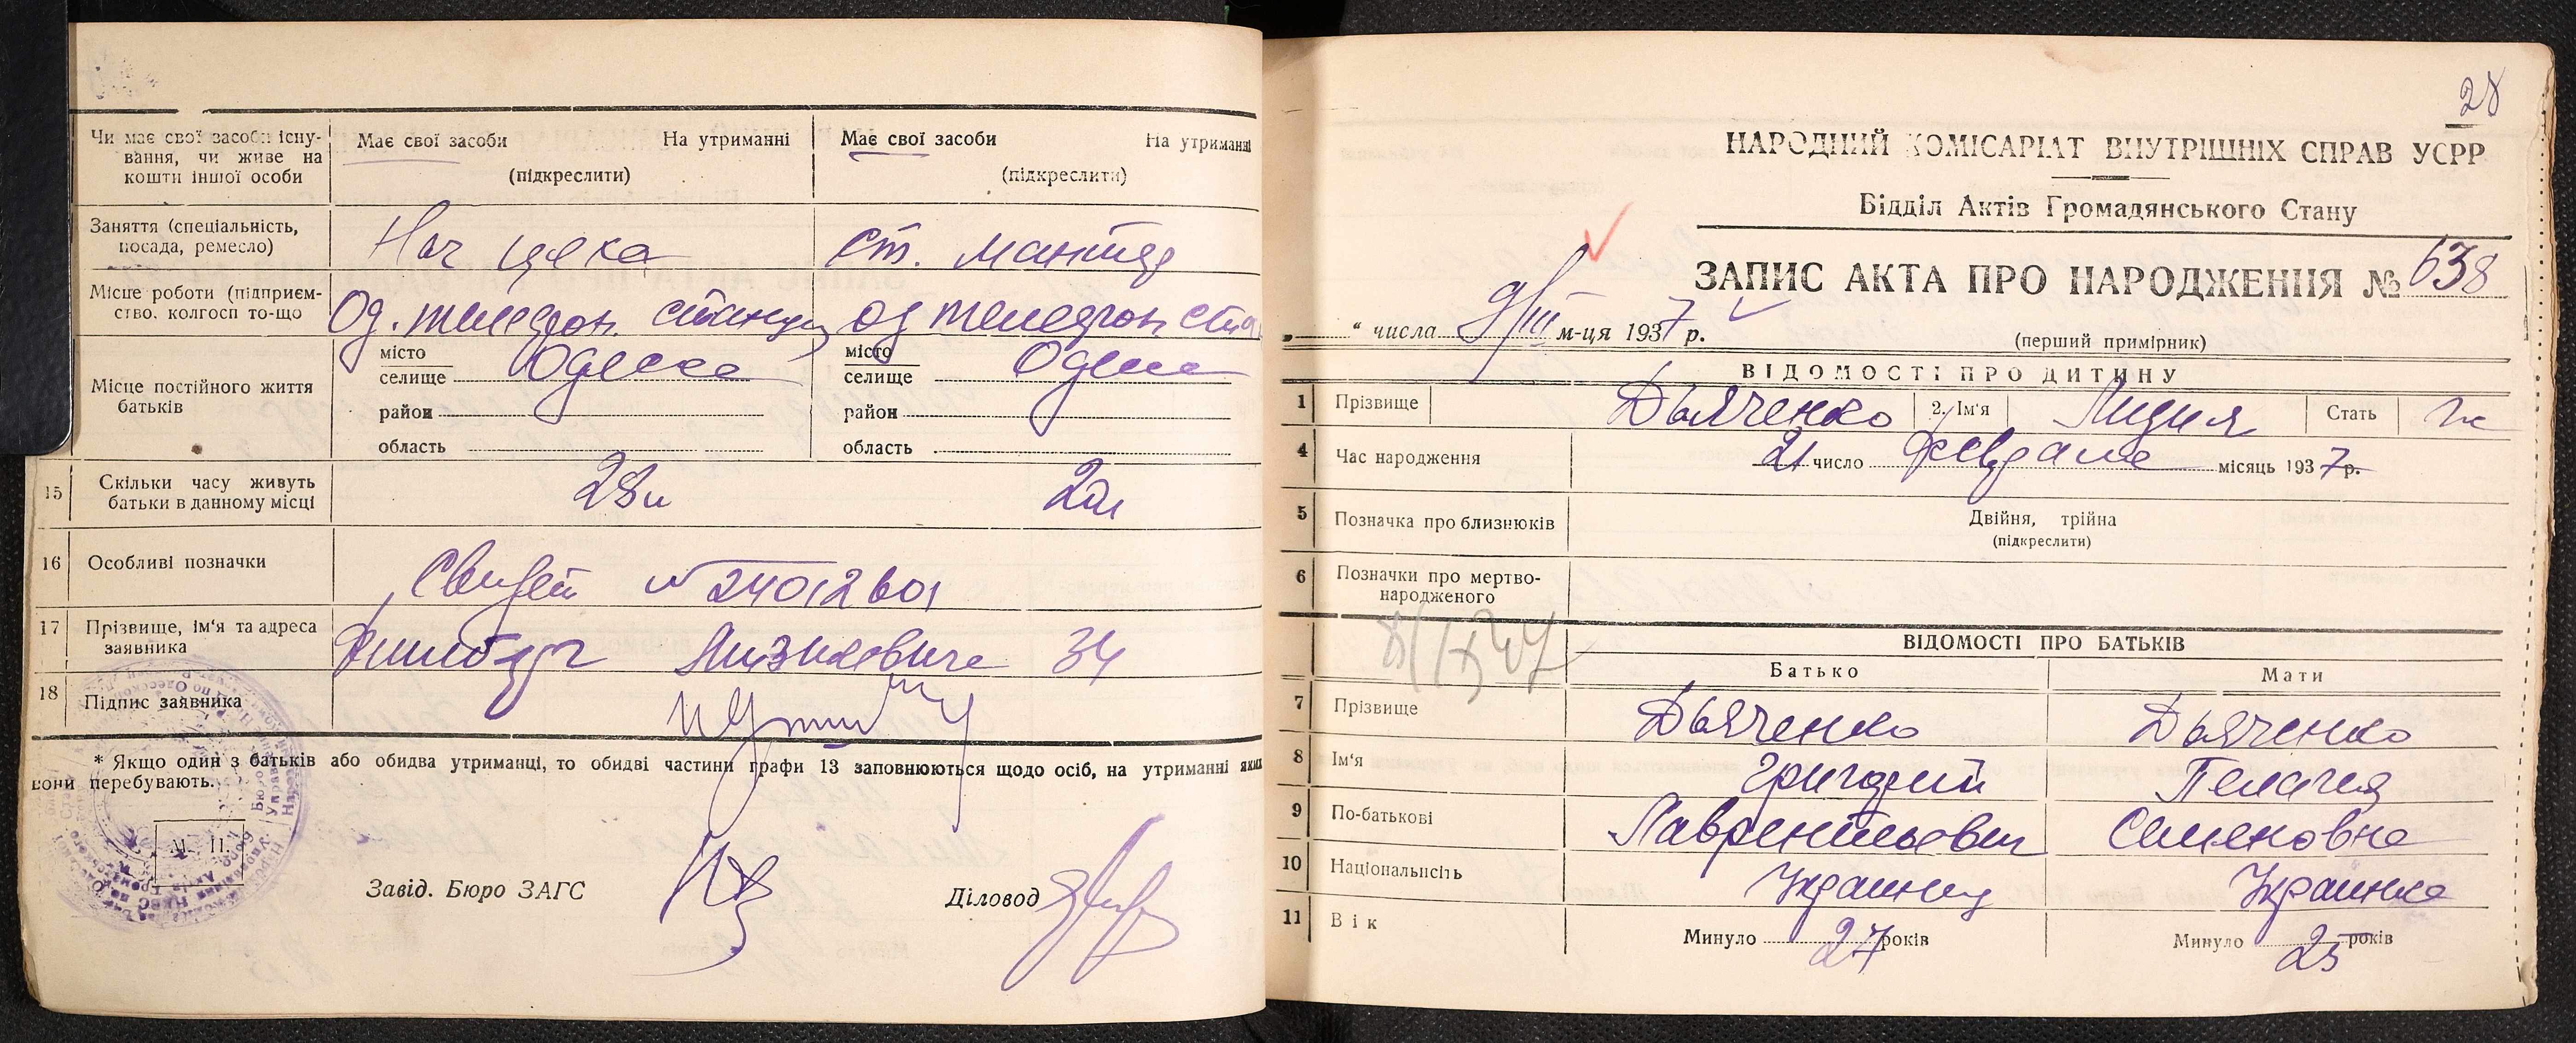 Чи має свої засоби існу-
вання, чи живе на
кошти іншої особи
Має свої засоби На утриманні
(підкреслити)
Має свої засоби На утриманні
(підкреслити)
Заняття (спеціальність,
посада, ремесло)
Нач цеха
Ст. монтер
Місце роботи (підприєм-
ство, колгосп то-що
Од. телефон. станция
Од телефон ста
Місце постійного життя
батьків
місто
селище Одесса
район
область
місто
селище Одесса
район
область
15 Скільки часу живуть
батьки в данному місці
16 Особливі позначки
Свидет № 24012601
17 Прізвище, ім'я та адреса
заявника
34
18 Підпис заявника
* Якщо один з батьків або обидва утриманці, то обидві частини графи 13 заповнюються щодо осіб, на утриманні яких
вони перебувають.
М. П.
Завід. Бюро ЗАГС
Діловод
28
НАРОДНИЙ КОМІСАРІАТ ВНУТРІШНІХ СПРАВ УСРР
Відділ Актів Громадянського Стану
ЗАПИС АКТА ПРО НАРОДЖЕННЯ № 638
„ “ числа 9/III м-ця 1937 р.
(перший примірник)
ВІДОМОСТІ ПРО ДИТИНУ
1 Прізвище Дьяченко 2. Ім'я Лидия Стать ж
4 Час народження 21 число февраля місяць 1937 р.
5 Позначка про близнюків Двійня, трійня
(підкреслити)
6 Позначки про мертво-
народженого
ВІДОМОСТІ ПРО БАТЬКІВ
Батько Мати
7 Прізвище Дьяченко Дьяченко
8 Ім'я Григорий Пелагея
9 По-батькові Лаврентьевич Семеновна
10 Національність Украинец Украинка
11 Вік Минуло 27 років Минуло 25 років